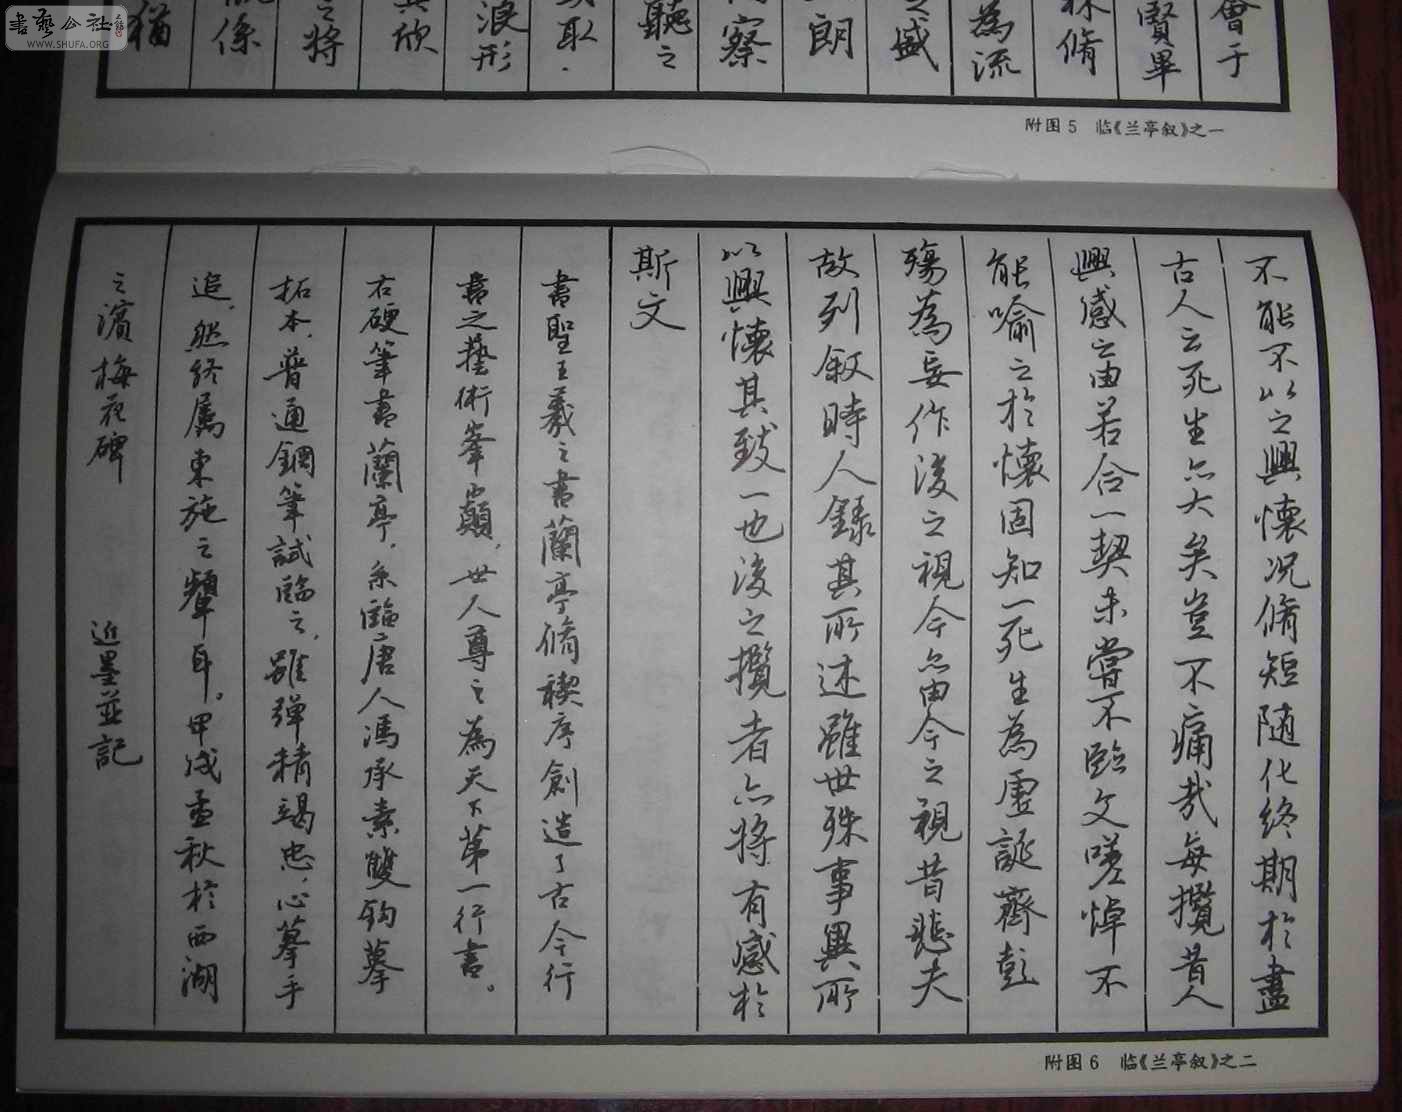 書艺公社
WWW.SHUFA.ORG
會于
賢畢
脩
為流
之盛
朗
察
聽之
取
浪形
欣
之将
係
猶
附图5 临《兰亭叙》之一
不能不以之興懷况脩短随化終期於盡
古人云死生亦大矣豈不痛哉每攬昔人
興感之由若合一契未嘗不臨文嗟悼不
能喻之於懷固知一死生為虛誕齊彭
殤為妄作後之視今亦由今之視昔悲夫
故列叙時人錄其所述雖世殊事異所
以興懷其致一也後之攬者亦将有感於
斯文
書聖王羲之書蘭亭脩禊序創造了古今行
書之藝術峯巔，世人尊之為天下第一行書。
右硬筆書蘭亭，系臨唐人馮承素雙鈎摹
拓本，普通鋼筆試臨之，雖殫精竭忠，心摹手
追，然終屬東施之顰耳。甲戌孟秋於西湖
之濱梅花碑
近墨並記
附图6 临《兰亭叙》之二